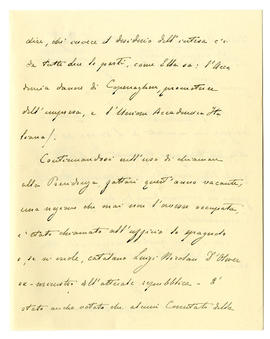 dire, chè invece il desiderio dell'intesa c'è
da tutte due le parti, come Ella sa: l'Acca
demia danese di Copenaghen promotrice
dell'impresa, e l'Unione Accademica Ita
liana).
Continuandosi nell'uso di chiamare
alla Presidenza, fattasi quest'anno vacante,
una nazione che mai non l'avesse occupata,
è stato chiamato all'ufficio lo spagnolo
o, se si vuole, catalano Luigi Nicolau D'Olwer
ex-ministro dell'attuale repubblica. - È
stato anche votato che alcuni Comitati delle